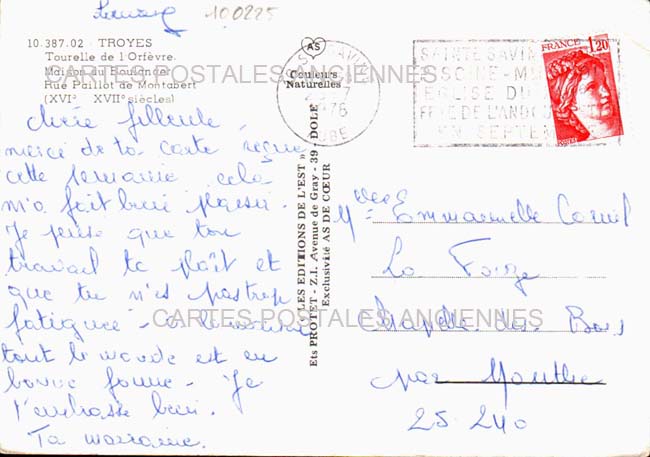 100225
10.387.02 - TROYES
Tourelle de l'Orfèvre.
Maison du Boulanger
Rue Paillot de Montabert
(XVIe XVIIe siècles)
AS
Couleurs
Naturelles
CARTES POSTALES ANCIENNES
Chère filleule,
merci de ta carte reçue
cette semaine cela
m'a fait bien plaisir.
Je pense que ton
travail te plaît et
que tu n'es pas trop
fatiguée - 
tout le monde est en
bonne forme - Je
t'embrasse bien.
Ta marraine.
LES EDITIONS DE L'EST
Ets PROTET - Z.I. Avenue de Gray - 39 - DOLE
Exclusivité AS DE CŒUR
SAINTE SAVIN
EGLISE DU
FRE DE L'ANDOU
EN SEPTE
FRANCE
1,20
Melle Emmanuelle Cornil
La
Chapelle des Bois
par Mouthe
25 240
CARTES POSTALES ANCIENNES